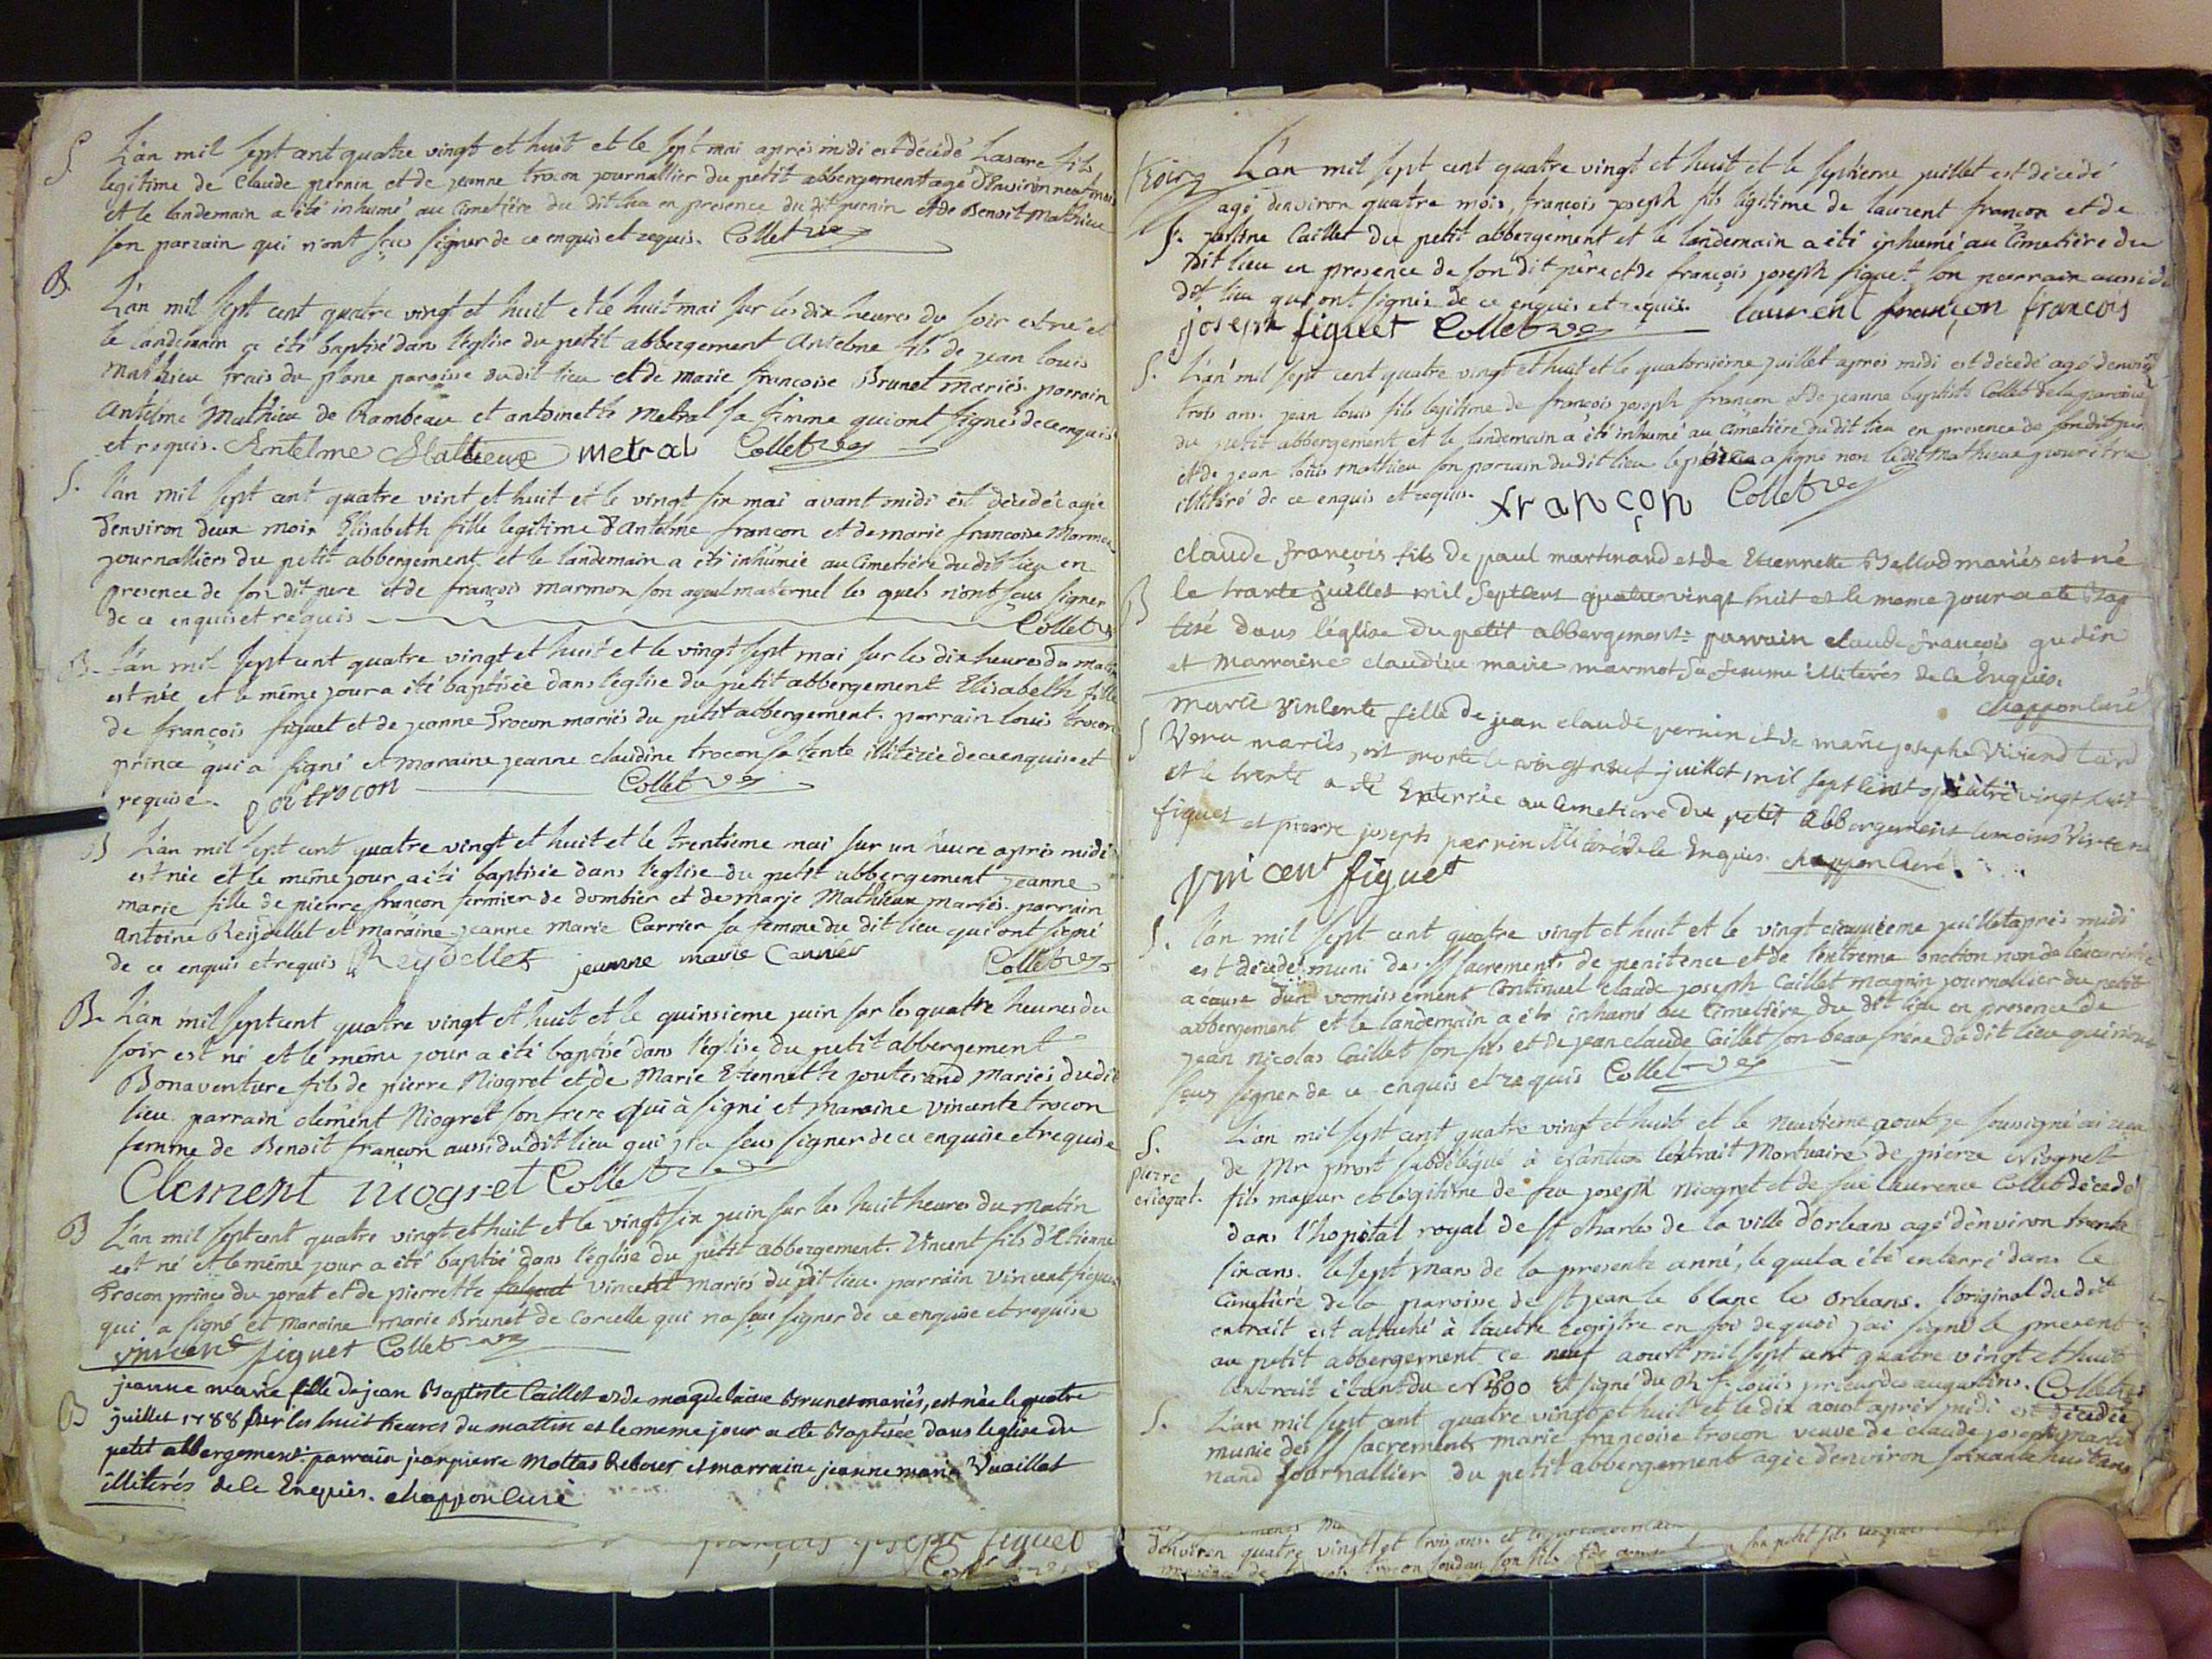 S L'an mil sept cent quatre vingt et huit et le sept mai après midi est décédé Lasare fils
legitime de Claude pernin et de jeanne trocon journallier du petit abbergement agé d'Environ neuf mois
et le landemain a été inhumé au Cimetière du dit lieu en presence du dit pernin et de Benoit Mathieu
son parrain qui n'ont sçus signer de ce enquis et requis. Collet
B. L'an mil sept cent quatre vingt et huit et le huit mai sur les dix heures du soir est né et
le landemain a été baptisé dans l'église du petit abbergement Antelme fils de jean louis
Mathieu frais du plane paroisse dudit lieu et de marie francoise Brunet mariés. parrain
Antelme Mathieu de Rambeau et antoinette Metral sa femme qui ont signés de ce enquis
et requis. Antelme Mathieu metral Collet
S. l'an mil sept cent quatre vint et huit et le vingt six mai avant midi est décédée agée
d'environ deux mois Elisabeth fille legitime d'Antelme françon et de marie francoise Marmon
journalliers du petit abbergement et le landemain a été inhumée au Cimetière du dit lieu en
presence de son dit pere et de françois marmon son ayeul maternel les quels n'ont sçus signer
de ce enquis et requis Collet
B. L'an mil sept cent quatre vingt et huit et le vingt sept mai sur les dix heures du matin
est née et le même jour a été baptisée dans l'église du petit abbergement Elisabeth fille
de françois figuet et de jeanne Trocon mariés du petit abbergement. parrain louis trocon
prince qui a signé et maraine jeanne claudine trocon sa tente illitérée de ce enquise et
requise. trocon Collet
B L'an mil sept cent quatre vingt et huit et le trentieme mai sur un heure après midi
est née et le même jour a été baptisée dans l'église du petit abbergement jeanne
marie fille de pierre françon fermier de dombier et de marie Mathieu mariés. parrain
Antoine Reydellet et maraine jeanne marie Carrier sa femme du dit lieu qui ont signé
de ce enquis et requis Reydellet jeanne marie Carrier Collet
B. L'an mil sept cent quatre vingt et huit et le quinsieme juin sur les quatre heures du
soir est né et le même jour a été baptisé dans l'église du petit abbergement
Bonaventure fils de pierre Niogret et de Marie Etiennette jouterand mariés du dit
lieu parrain clement Niogret son frere qui à signé et maraine vincente trocon
femme de Benoit françon aussi du dit lieu qui n'a sçus signer de ce enquise et requise
Clement niogret Collet
B L'an mil sept cent quatre vingt et huit et le vingt six juin sur les huit heures du matin
est né et le même jour a été baptisé dans l'église du petit abbergement. Vincent fils d'Etienne
Trocon prince du jorat et de pierrette vincent mariés du dit lieu. parrain vincent figuet
qui a signé et maraine marie Brunet de Corcelle qui na sçus signer de ce enquise et requise
vincent figuet Collet
B jeanne marie fille de jean Baptiste Caillet et de magdelaine Brunet mariés, est née le quatre
juillet 1788 sur les huit heures du mattin et le meme jour a été Baptisée dans l'eglise du
petit abbergement. parrain jean pierre et marraine jeanne marie Vuaillat
illiterés de le Enquis. chappon Curé
françois joseph figuet
L'an mil sept cent quatre vingt et huit et le septieme juillet est décédé
agé d'environ quatre mois, francois joseph fils légitime de laurent françon et de
S. Caillet du petit abbergement et le landemain a été inhumé au Cimetière du
dit lieu en presence de son dit père et de françois joseph figuet son parrain aussi du
dit lieu qui ont signés de ce enquis et requis. laurent françon francois
joseph figuet Collet
S. L'an mil sept cent quatre vingt et huit et le quatorsième juillet après midi est décédé agé d'environ
trois ans. jean louis fils legitime de françois joseph françon et de jeanne baptiste Collet de la paroisse
du petit abbergement et le landemain a été inhumé au Cimetière du dit lieu en presence de son dit pere
et de jean louis Mathieu son parrain du dit lieu le père a signé non le dit Mathieu pour être
illitéré de ce enquis et requis. françon Collet
claude françois fils de paul martinand et de Etiennette Bellod mariés est né
B le trante juillet mil Sept Cent quatre vingt huit et le meme jour a eté Bap
tisé dans l'église du petit abbergement. parrain claude françois gudin
et marraine claudine marie marmot Sa femme illiterés de le Enquis.
chappon Curé
S Marie vincente fille de jean claude pernin et de marie josephe Viviend
mariés, est morte le vingt neuf juillet mil sept cent quatre vingt huit
et le trente a eté Enterrée au Cimetiere du petit abbergement temoins Vincent
figuet et pierre joseph pernin illiteré de le Enquis. chappon Curé.
vincent figuet
S. l'an mil sept cent quatre vingt et huit et le vingt cinquieme juillet après midi
est décédé muni des SS sacrements de penitence et de l'extreme onction non de l'eucaristie
a cause d'un vomissement Continuel claude joseph Caillet magnin journallier du petit
abbergement et le landemain a été inhumé au Cimetière du dit lieu en presence de
jean nicolas Caillet son fils et de jean claude Caillet son beau frère du dit lieu qui n'ont
sçus signer de ce enquis et requis Collet
S. L'an mil sept cent quatre vingt et huit et le neuvieme aoust je soussigné ai reçu
de Mr prost subdélégué à Nantua l'extrait Mortuaire de pierre Niogret
pierre niogret. fils majeur et légitime de feu joseph niogret et de fue laurence Collet décédé
dans l'hopital royal de St charles de la ville d'orleans agé d'environ trente
six ans. le sept mars de la presente anné, le quel a été enterré dans le
Cimetière de la paroisse de St jean le blanc les Orleans. l'original du dit
extrait est attaché à l'autre registre en foi de quoi j'ai signé le present
au petit abbergement ce neuf aoust mil sept cent quatre vingt et huit
l'extrait étant du N 800 et signé du R f. loüis prieur des augustins. Collet
S. L'an mil sept cent quatre vingt et huit et le dix aoust après midi est décédée
munie des SS sacrements marie françoise trocon veuve de claude joseph marti
nand journallier du petit abbergement agée d'environ soixante huit ans
d'environ quatre vingt et trois ans. et